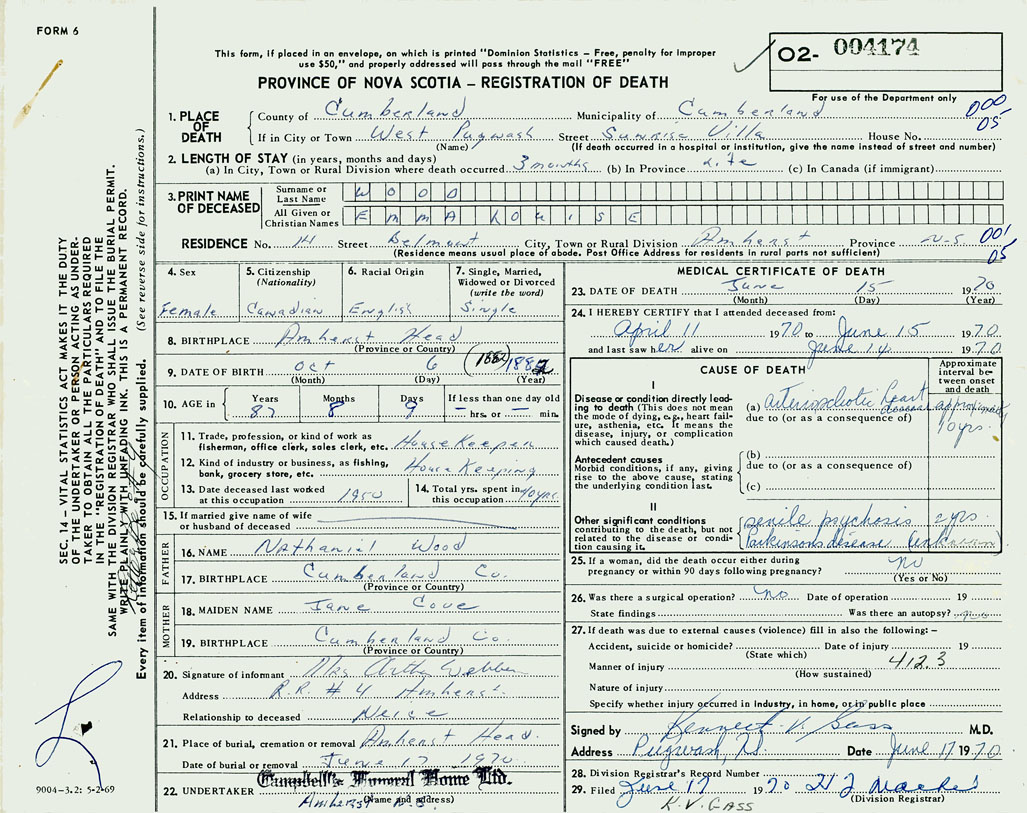 FORM 6
This form, if placed in an envelope, on which is printed "Dominion Statistics – Free, penalty for improper
use $50," and properly addressed will pass through the mail "FREE"
O2- 004174
PROVINCE OF NOVA SCOTIA – REGISTRATION OF DEATH
For use of the Department only
000
05
1. PLACE OF DEATH
County of Cumberland Municipality of Cumberland
If in City or Town West Pugwash Street Sunrise Villa House No.
(Name) (If death occurred in a hospital or institution, give the name instead of street and number)
2. LENGTH OF STAY (in years, months and days)
(a) In City, Town or Rural Division where death occurred 3 months (b) In Province Life (c) In Canada (if immigrant)
3. PRINT NAME OF DECEASED
Surname or Last Name WOOD
All Given or Christian Names EMMA LOUISE
RESIDENCE No. 14 Street Belmont City, Town or Rural Division Amherst Province N.S. 001
05
(Residence means usual place of abode. Post Office Address for residents in rural parts not sufficient)
4. Sex
Female
5. Citizenship
(Nationality)
Canadian
6. Racial Origin
English
7. Single, Married,
Widowed or Divorced
(write the word)
Single
8. BIRTHPLACE Amherst Head
(Province or Country)
9. DATE OF BIRTH Oct 6 (1882) 1882
(Month) (Day) (Year)
10. AGE in
Years Months Days If less than one day old
87 8 9 – hrs. or – min.
OCCUPATION
11. Trade, profession, or kind of work as
fisherman, office clerk, sales clerk, etc. HouseKeeper
12. Kind of industry or business, as fishing,
bank, grocery store, etc. House Keeping
13. Date deceased last worked
at this occupation 1950
14. Total yrs. spent in
this occupation 40 yrs.
15. If married give name of wife
or husband of deceased
FATHER
16. NAME Nathaniel Wood
17. BIRTHPLACE Cumberland Co.
(Province or Country)
MOTHER
18. MAIDEN NAME Jane Cove
19. BIRTHPLACE Cumberland Co.
(Province or Country)
20. Signature of informant Mrs Arthur Webber
Address R.R. #4 Amherst
Relationship to deceased Neice
21. Place of burial, cremation or removal Amherst Head.
Date of burial or removal June 17 1970
22. UNDERTAKER Campbell's Funeral Home Ltd.
(Name and address)
Amherst N.S.
MEDICAL CERTIFICATE OF DEATH
23. DATE OF DEATH June 15 1970
(Month) (Day) (Year)
24. I HEREBY CERTIFY that I attended deceased from:
April 11 1970 to June 15 1970
and last saw her alive on June 14 1970
CAUSE OF DEATH
Approximate
interval be-
tween onset
and death
I
Disease or condition directly lead-
ing to death (This does not mean
the mode of dying, e.g., heart fail-
ure, asthenia, etc. It means the
disease, injury, or complication
which caused death.)
(a) arteriosclerotic heart disease approximately 10 yrs.
due to (or as a consequence of)
Antecedent causes
Morbid conditions, if any, giving
rise to the above cause, stating
the underlying condition last.
(b)
due to (or as a consequence of)
(c)
II
Other significant conditions
contributing to the death, but not
related to the disease or condi-
tion causing it.
senile psychosis yrs.
Parkinsons disease (unknown)
25. If a woman, did the death occur either during
pregnancy or within 90 days following pregnancy? no
(Yes or No)
26. Was there a surgical operation? no Date of operation 19
State findings Was there an autopsy? no
27. If death was due to external causes (violence) fill in also the following: –
Accident, suicide or homicide? Date of injury 19
(State which)
Manner of injury 412.3
(How sustained)
Nature of injury
Specify whether injury occurred in industry, in home, or in public place
Signed by Kenneth V. Gass M.D.
Address Pugwash, N.S. Date June 17 1970
28. Division Registrar's Record Number
29. Filed June 17 1970
(Division Registrar)
K.V. GASS
SEC. 14 – VITAL STATISTICS ACT MAKES IT THE DUTY
OF THE UNDERTAKER OR PERSON ACTING AS UNDER-
TAKER TO OBTAIN ALL THE PARTICULARS REQUIRED
IN THE "REGISTRATION OF DEATH" AND TO FILE THE
SAME WITH THE DIVISION REGISTRAR WHO SHALL ISSUE THE BURIAL PERMIT.
WRITE PLAINLY WITH UNFADING INK. THIS IS A PERMANENT RECORD.
Every item of information should be carefully supplied. (See reverse side for instructions.)
9004–3.2: 5-2-69